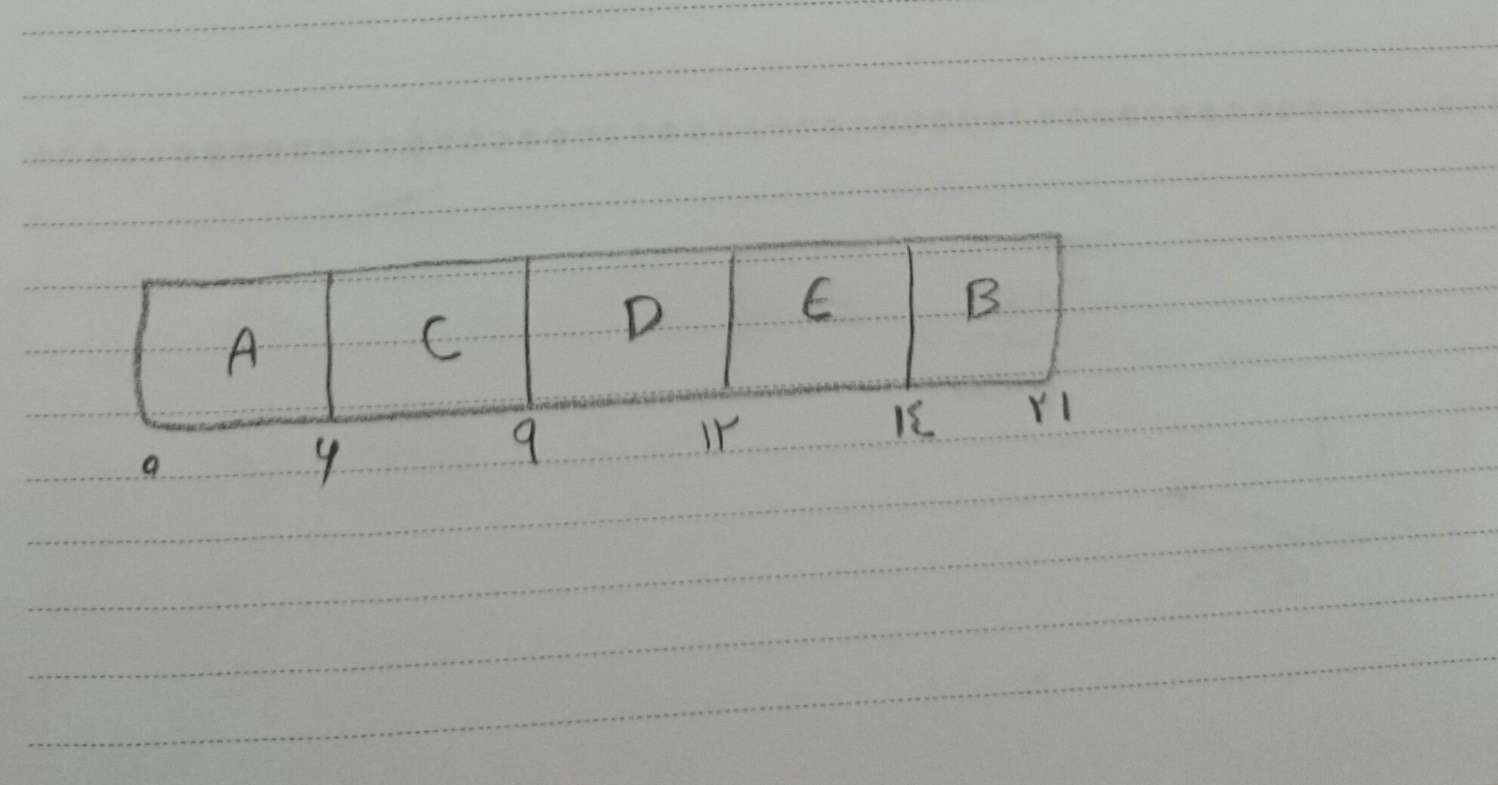 A C D E B
۰ ۶ ۹ ۱۲ ۱۴ ۲۱